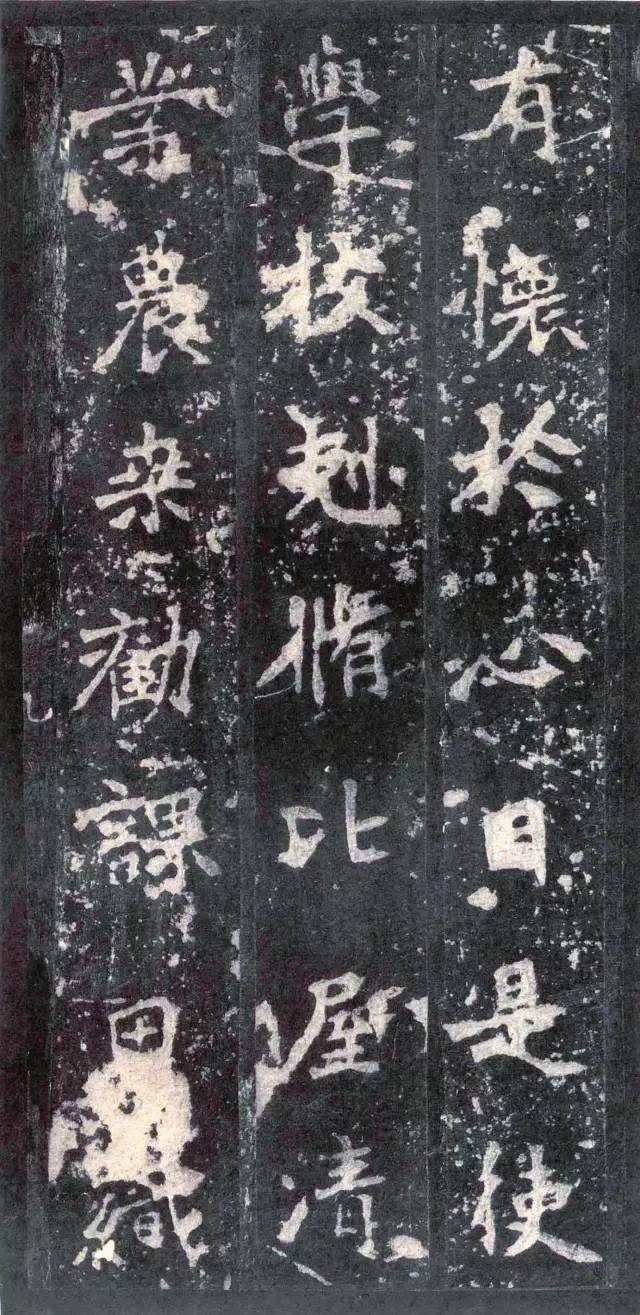 有懷於心自是使
學校尅脩比屋清
業農桒勸課田織